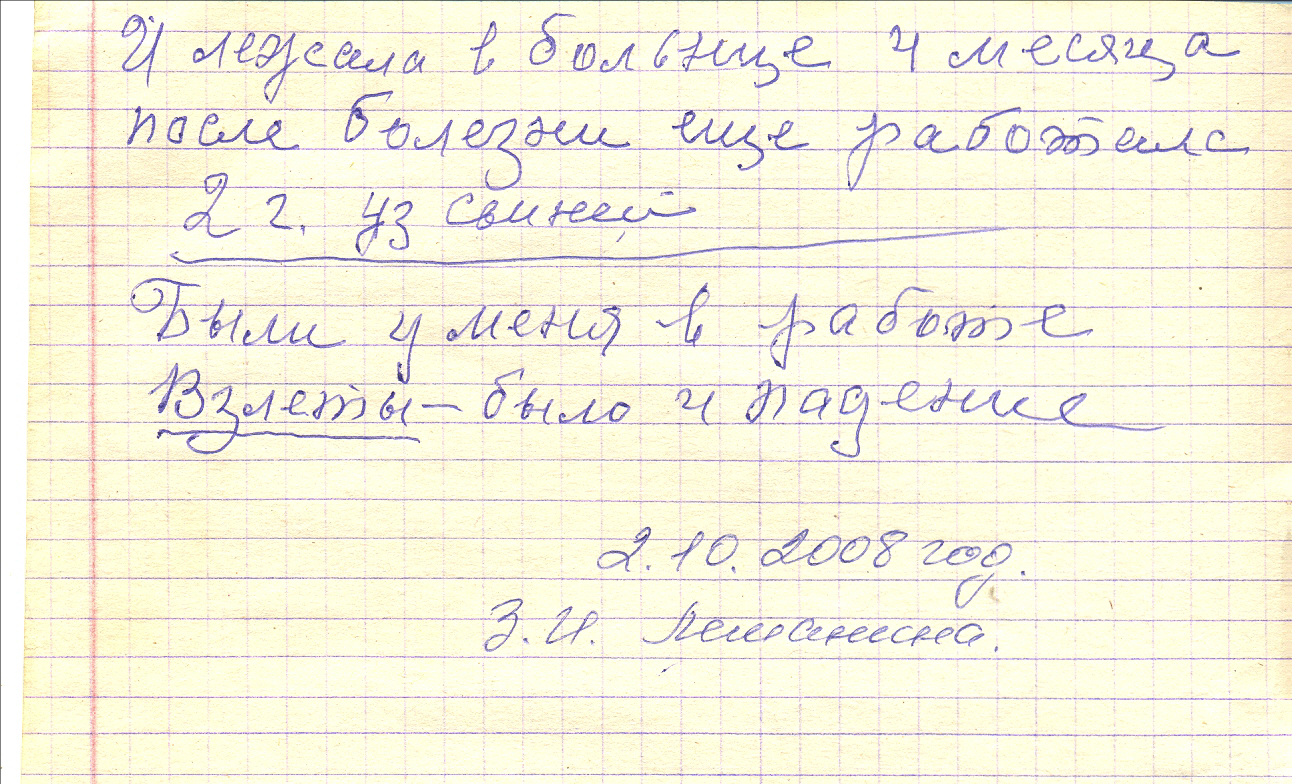 И лежала в больнице 4 месяца
после болезни еще работала
2 г. уз свиней
Были у меня в работе
Взлеты – было и падение
2.10.2008 год.
З.И.